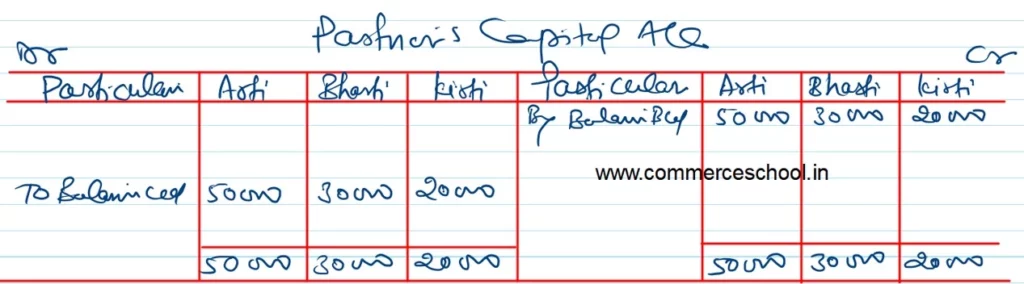 Partner's Capital A/c
Dr Cr
Particulars Arti Bharti Kirti Particulars Arti Bharti Kirti
By Balance B/d 50000 30000 20000
www.commerceschool.in
To Balance c/d 50000 30000 20000
50000 30000 20000 50000 30000 20000